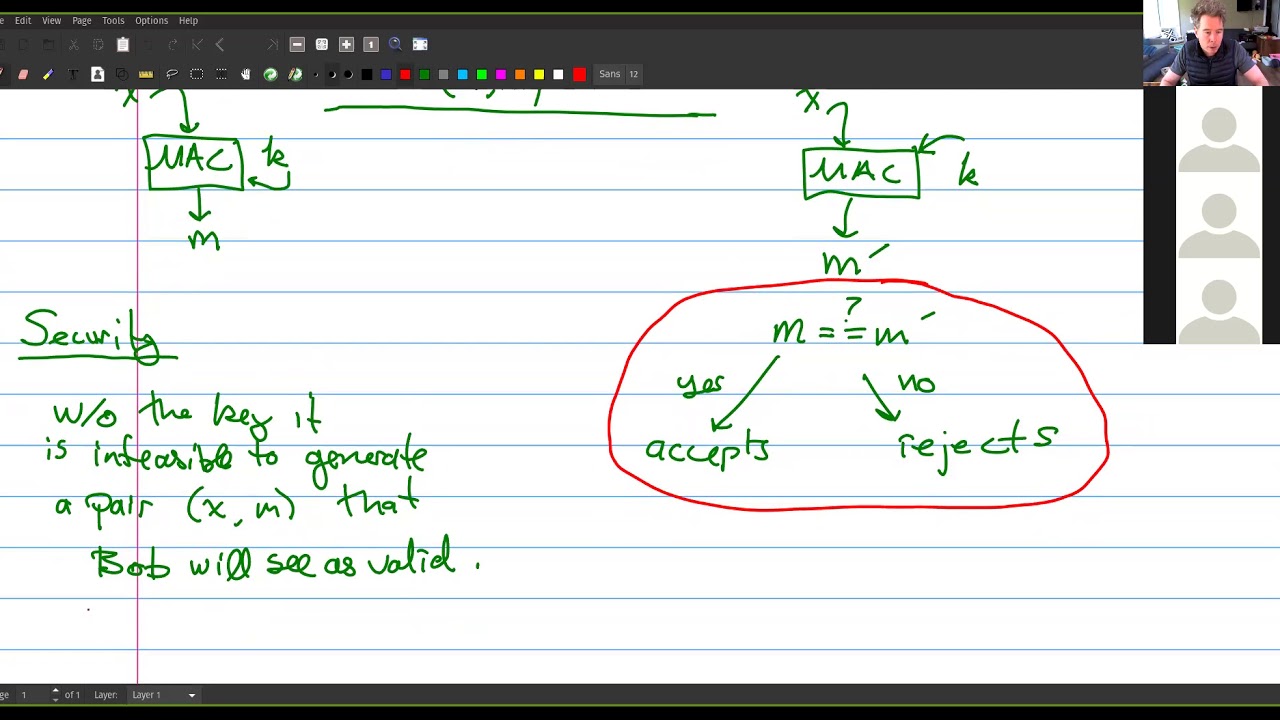 Edit View Page Tools Options Help
Sans 12
x
x
MAC k
MAC k
m
m′
Security
m =≟ m′
yes no
accepts rejects
w/o the key it
is infeasible to generate
a pair (x, m) that
Bob will see as valid.
ge 1 of 1 Layer: Layer 1